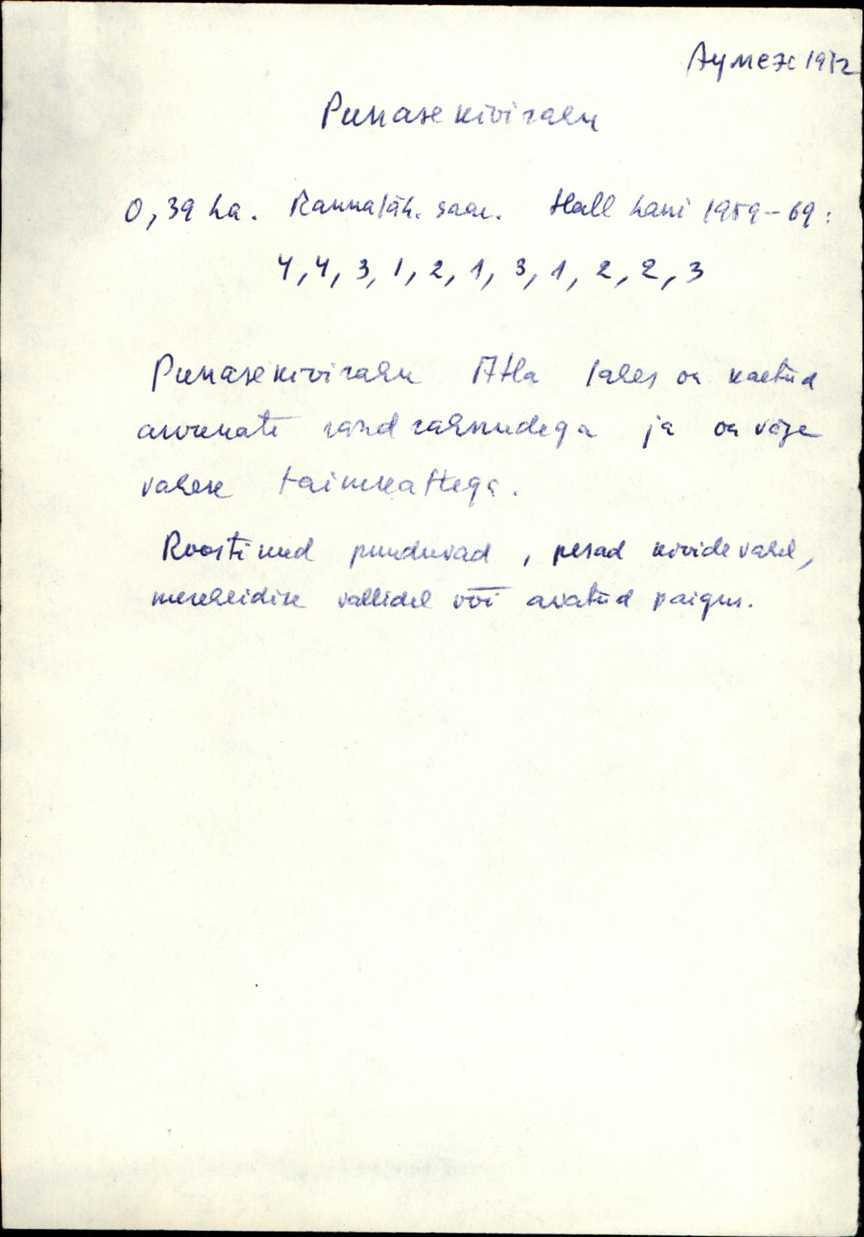 Аумеж 1972
Punasekivirahu
0,39 ha. Rannaläh. saar. Hall hani 1959-69:
4, 4, 3, 1, 2, 1, 3, 1, 2, 2, 3
Punasekivirahu Atla lahes on kaetud
arvukate rändrahnudega ja on väga
vähese taimkattega.
Roostikud puuduvad, pesad kivide vahel,
mereheidise vallidel või avatud paigus.